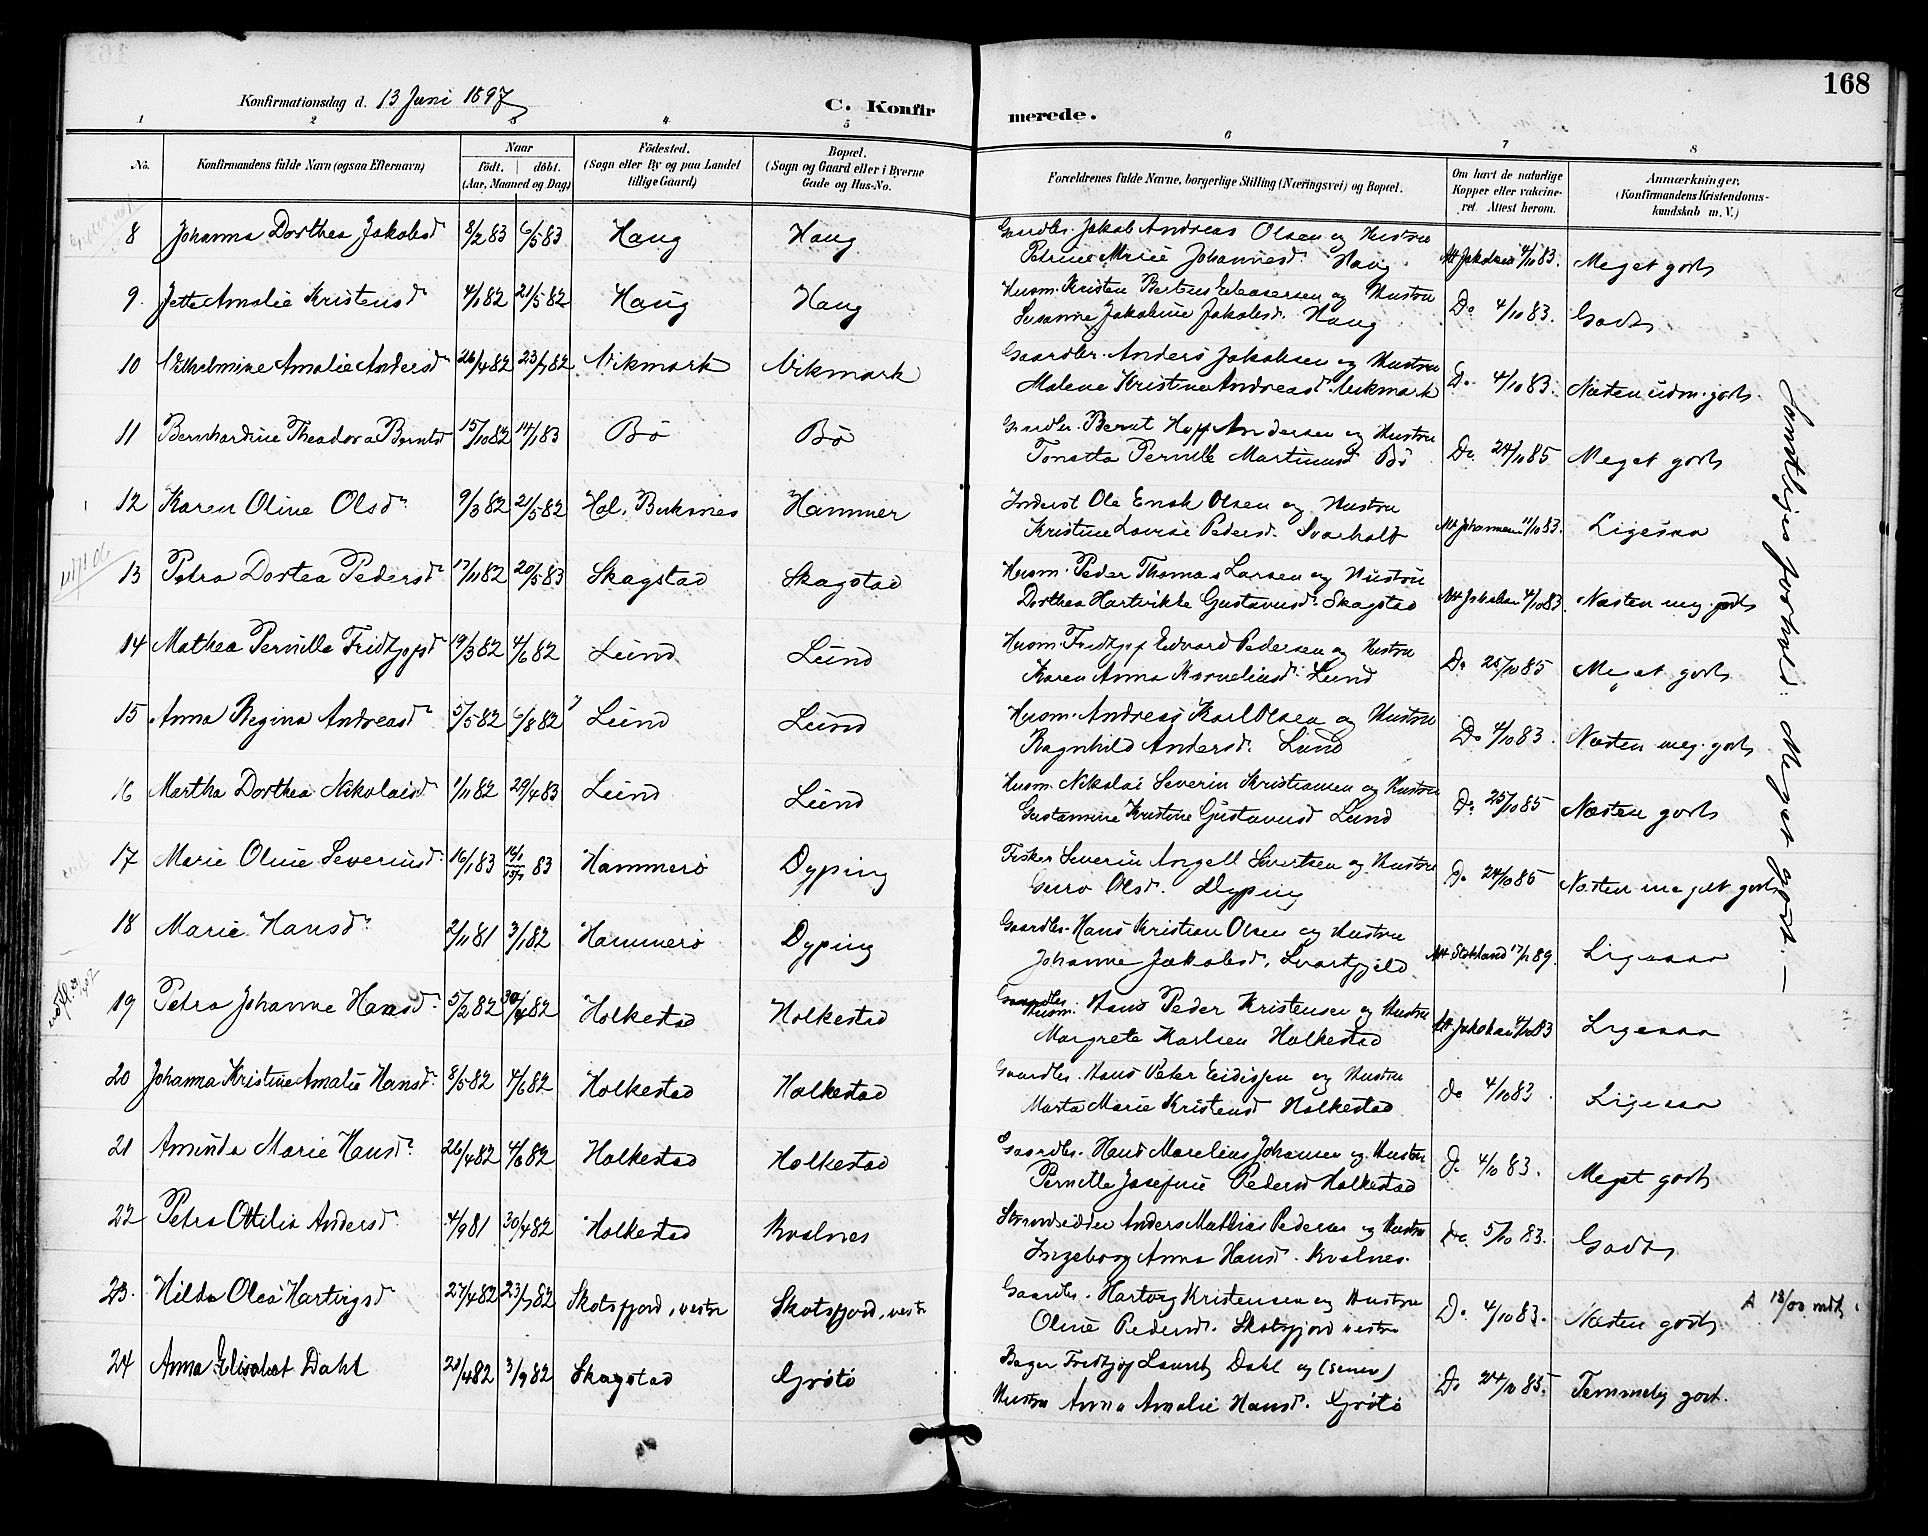 168
Konfirmationsdag d. 13 Juni 1897
C. Konfirmerede.
1 2 3 4 5 6 7 8
No.
Konfirmandens fulde Navn (ogsaa Efternavn)
Naar
födt. döbt.
(Aar, Maaned og Dag)
Födested.
(Sogn eller By og paa Landet
tillige Gaard)
Bopæl.
(Sogn og Gaard eller i Byerne
Gade og Hus-No.
Forældrenes fulde Navne, borgerlige Stilling (Næringsvei) og Bopæl.
Om havt de naturlige
Kopper eller vakcine-
ret. Attest herom.
Anmærkninger.
(Konfirmandens Kristendoms-
kundskab m. V.)
8 Johanna Dorthea Jakobsd 8/2 83 6/5 83 Haug Haug Gaardbr. Jakob Andreas Olsen og Hustru
Petrine Marie Johannesd. Haug Att Jakobsen 4/10 83. Meget godt
9. Jette Amalie Kristensd 4/1 82 21/5 82 Haug Haug Husm. Kristen Berteus Eleasersen og Hustru
Susanne Jakobine Jakobsd. Haug Do 4/10 83. Godt
10 Vilhelmine Amalie Andersd 26/4 82 23/7 82 Vikmark Vikmark Gaardbr. Anders Jakobsen og Hustru
Malene Kristine Andreasd. Vikmark Do 4/10 83. Næsten udm. godt.
11 Bernhardine Theodora Berntsd 15/10 82 14/1 83 Bö Bö Gaardbr. Bernt Hoff Andersen og Hustru
Tonetta Pernille Martinusd Bö Do. 24/10 85 Meget godt
12 Karen Oline Olsd. 9/3 82 21/5 82 Hol, Buksnes Hammer Inderst Ole Enok Olsen og Hustru
Kristine Lovise Pedersd. Svarholt Att Johannesen 11/10 83. Ligesaa
13 Petra Dortea Pedersd. 17/11 82 20/5 83 Skagstad Skagstad Husm. Peder Thomas Larsen og Hustru
Dorthea Hartvikke Gustavusd. Skagstad Att Jakobsen 4/10 83. Næsten meg. godt
14 Mathea Pernille Fridtjofsd. 19/3 82 4/6 82 Lund Lund Husm. Fridtjof Edvard Pedersen og Hustru
Karen Anna Korneliusd. Lund Do 25/10 85 Meget godt
15 Anna Regina Andreasd. 5/5 82 6/8 82 Lund Lund Husm. Andreas Karl Olsen og Hustru
Ragnhild Andersd. Lund Do 4/10 83. Næsten meg. godt
16 Martha Dorthea Nikolaisd 1/11 82 29/4 83 Lund Lund Husm. Nikolai Severin Kristiansen og Hustru
Gustavine Kristine Gustavusd Lund Do 25/10 85 Næsten godt
17 Marie Oline Severinsd. 16/1 83 83 Hammerö Dyping Fisker Severin Angell Sivertsen og Hustru
Guro Olsd. Dyping Do 24/10 85 Næsten meget godt
18 Marie Hansd. 2/11 81 3/1 82 Hammerö Dyping Gaardbr. Hans Kristian Olsen og Hustru
Johanne Jakobsd. Svartfjeld Att Stokland 17/7 89. Ligesaa
19 Petra Johanne Hansd. 5/2 82 30/4 82 Holkestad Holkestad Gaardbr. Hans Peder Kristensen og Hustru
Margrete Karlsen Holkestad Att Jakobsen 4/10 83 Ligesaa
20 Johanna Kristine Amalie Hansd. 8/5 82 4/6 82 Holkestad Holkestad Gaardbr. Hans Peter Eidissen og Hustru
Marta Marie Kristensd Holkestad. do 4/10 83. Ligesaa
21 Aminda Marie Hansd. 26/4 82 4/6 82 Holkestad Holkestad Gaardbr. Hans Marelius Johansen og Hustru
Pernille Josefine Pedersd Holkestad Do 4/10 83. Meget godt
22 Petra Ottilia Andersd. 4/9 81 30/4 82 Holkestad Kvalnes Strandsidder Anders Mathias Pedersen og Hustru
Ingeborg Anna Hansd. Kvalnes. do. 5/10 83. Godt
23. Hilda Olea Hartvigsd 27/4 82 23/7 82 Skotsfjord, vestre Skotsfjord, vestr Gaardbr. Hartvig Kristensen og Hustru
Oline Pedersd. Skotsfjord vestre Do 4/10 83. Næsten godt A
24 Anna Elisabet Dahl 20/4 82 3/9 82 Skagstad Grötö Bager Fredtjof Lauritz Dahl og
Hustru Anna Amalie Hansd. Grötö Do 24/10 85. Temmelig godt.
Samtliges forhold: Meget godt.—